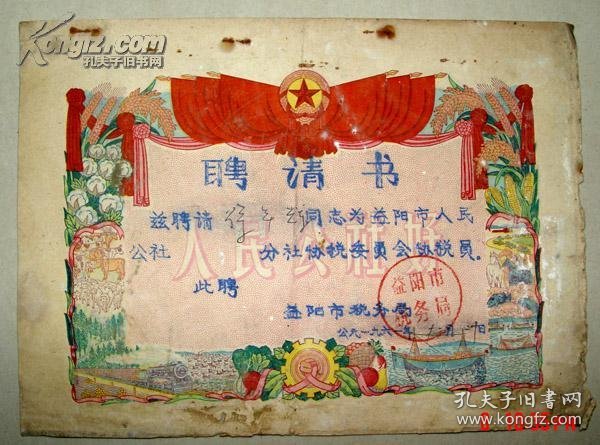 Kongfz.com
孔夫子旧书网
聘请书
兹聘请 同志为益阳市人民
公社 分社协税委员会协税员。
人民公社好
此聘
益阳市税务局
公元一九六 年 月 日
益阳市
税务局
孔夫子旧书网
www.kongfz.com